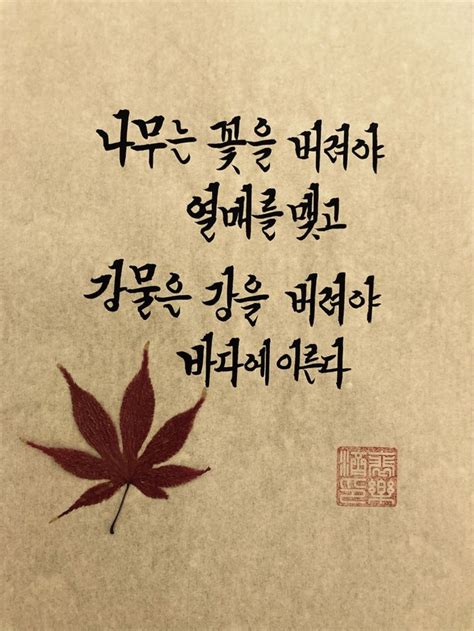 나무는 꽃을 버려야
열매를 맺고
강물은 강을 버려야
바다에 이른다